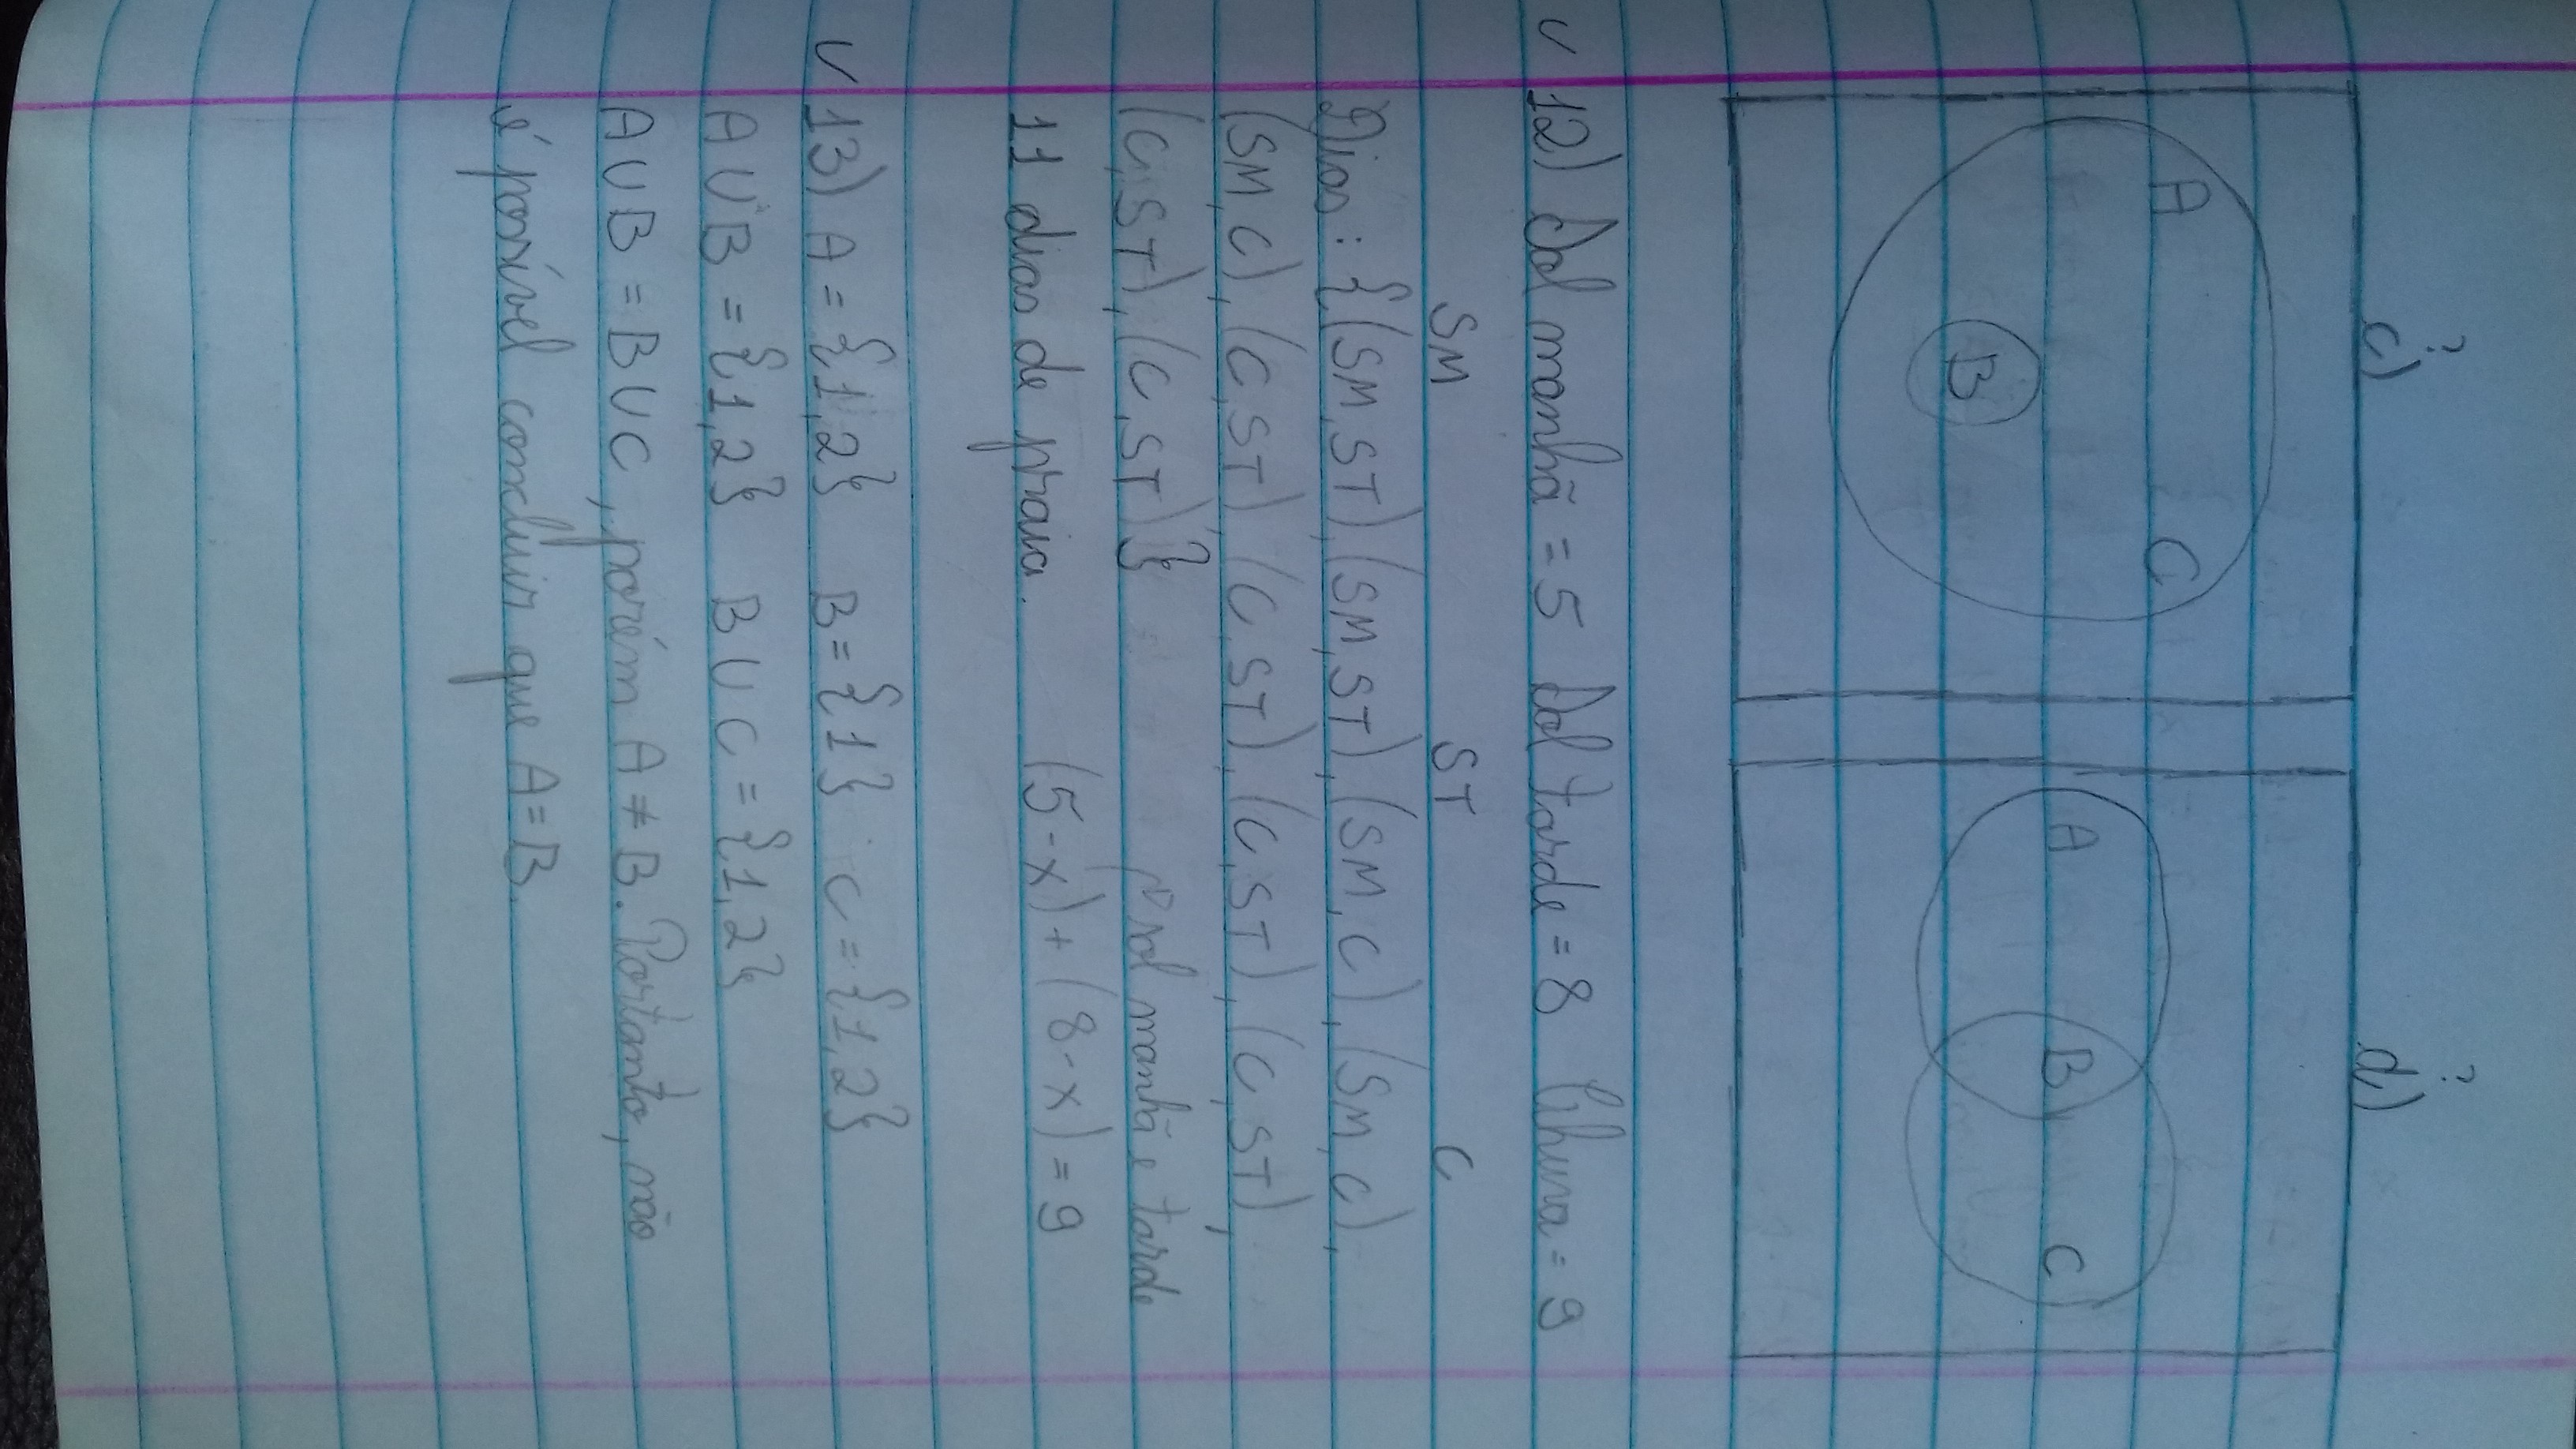 ? ?
c) d)
A C
A B C
B
✓ 12) Sol manhã = 5 Sol tarde = 8 Chuva = 9
SM ST C
Dias: {(SM, ST), (SM, ST), (SM, C), (SM, C),
(SM, C), (C, ST), (C, ST), (C, ST), (C, ST),
(C, ST), (C, ST)}
sol manhã e tarde
11 dias de praia. (5-x) + (8-x) = 9
✓ 13) A = {1,2} B = {1} C = {1,2}
A U B = {1,2} B U C = {1,2}
A U B = B U C, porém A ≠ B. Portanto, não
é possível concluir que A = B.